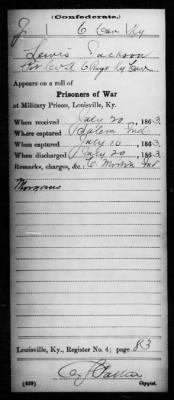 (Confederate.)
J 6 Cav Ky
Lewis Jackson
Co. A 6 Regt Ky Cav
Appears on a roll of
Prisoners of War
at Military Prison, Louisville, Ky.
When received July 20, 1863
Where captured Salem Ind
When captured July 10, 1863
When discharged July 20, 1863
Remarks, charges, &c.: C. Morton Ind
Morgans
Louisville, Ky., Register No. 4; page 83
(639) Copyist.